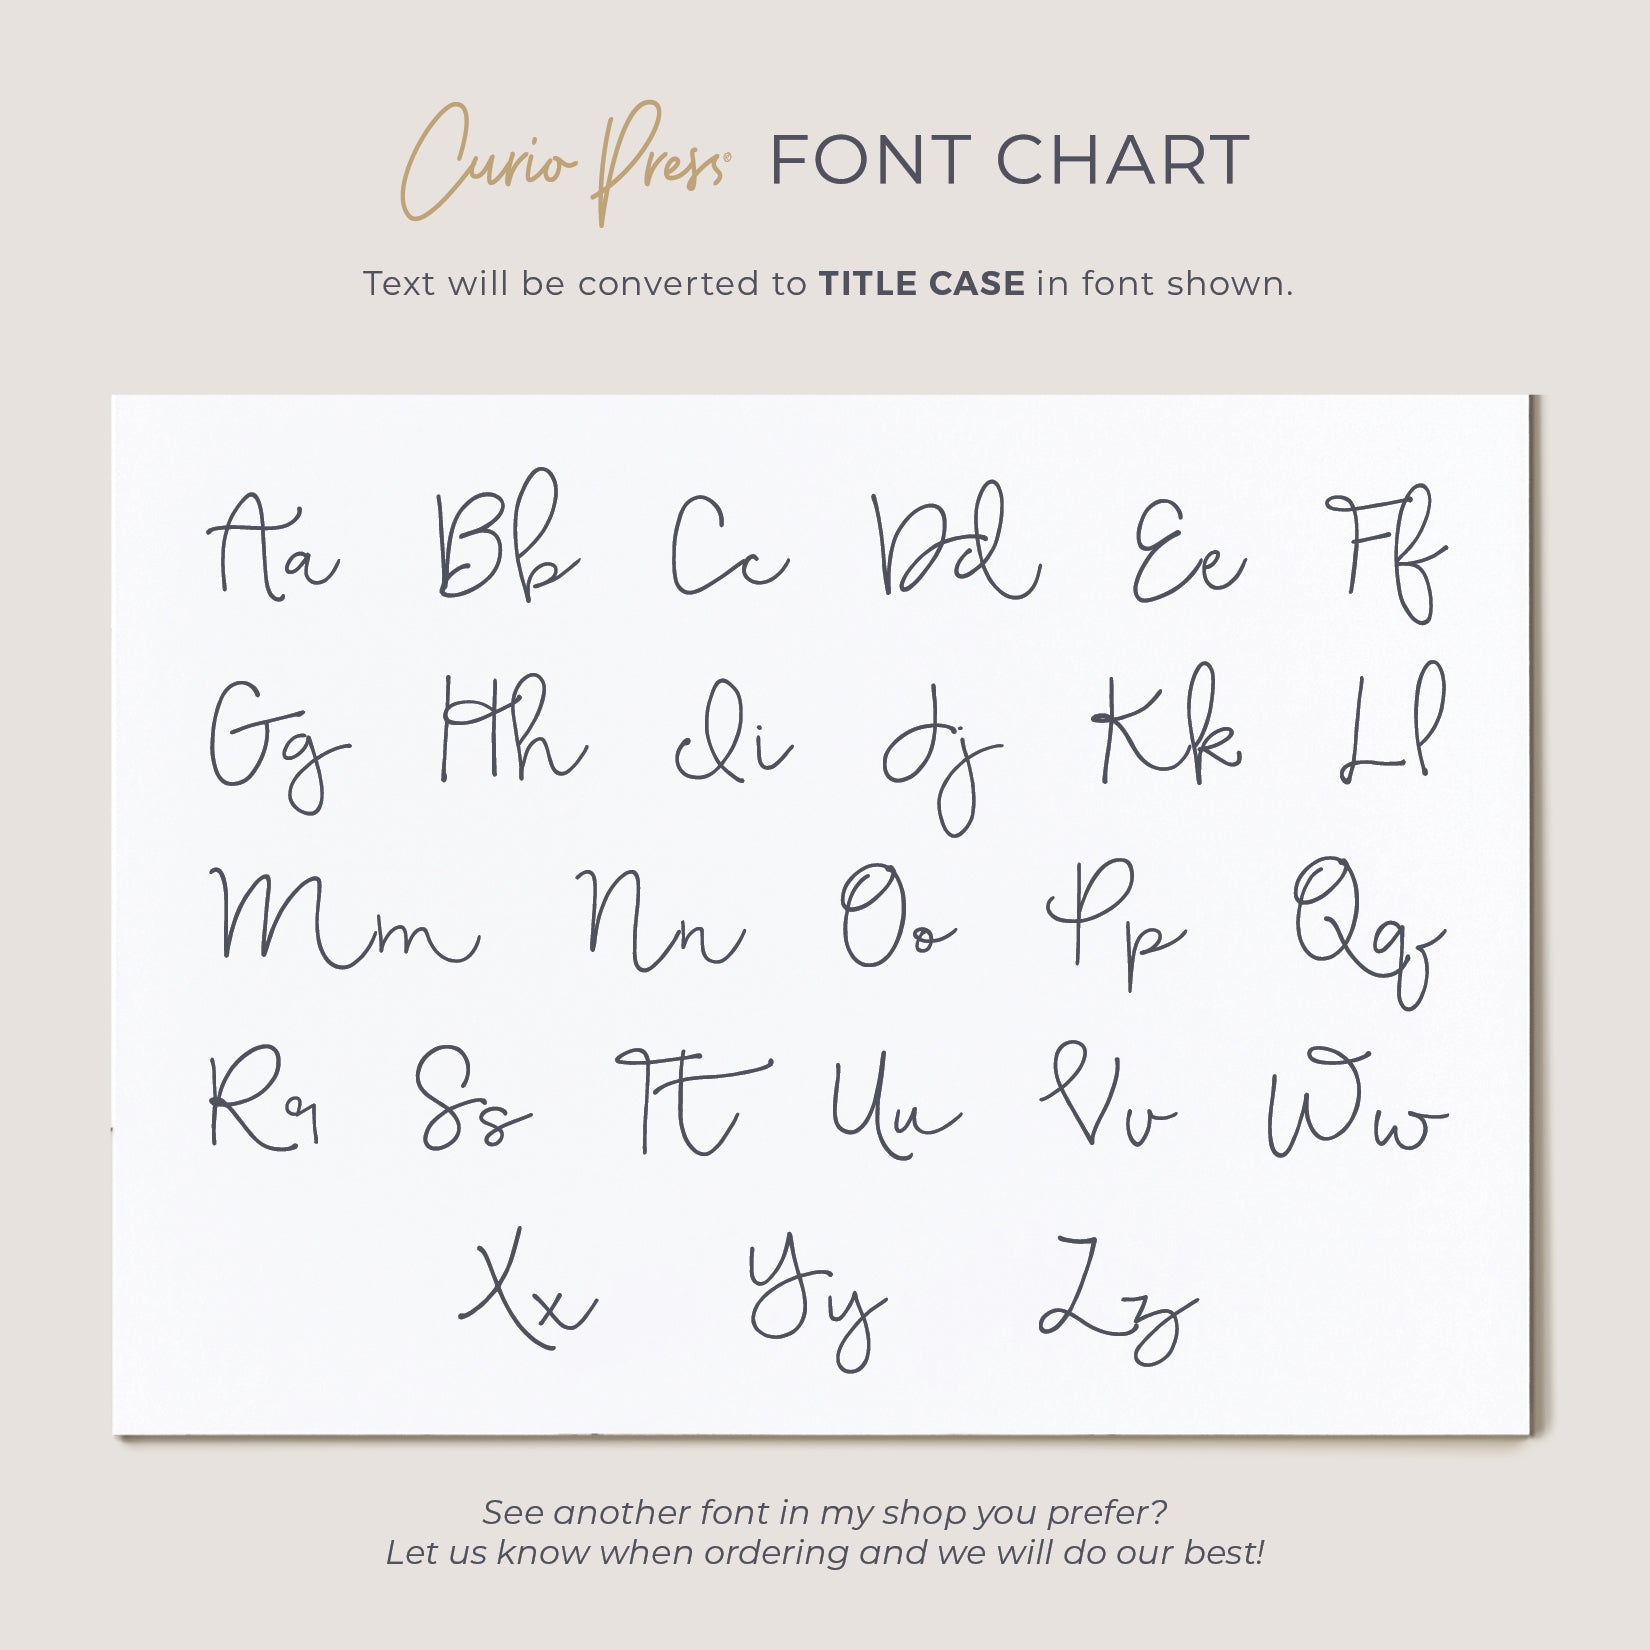 Curio Press® FONT CHART
Text will be converted to TITLE CASE in font shown.
Aa Bb Cc Dd Ee Ff
Gg Hh Ii Jj Kk Ll
Mm Nn Oo Pp Qq
Rr Ss Tt Uu Vv Ww
Xx Yy Zz
See another font in my shop you prefer?
Let us know when ordering and we will do our best!